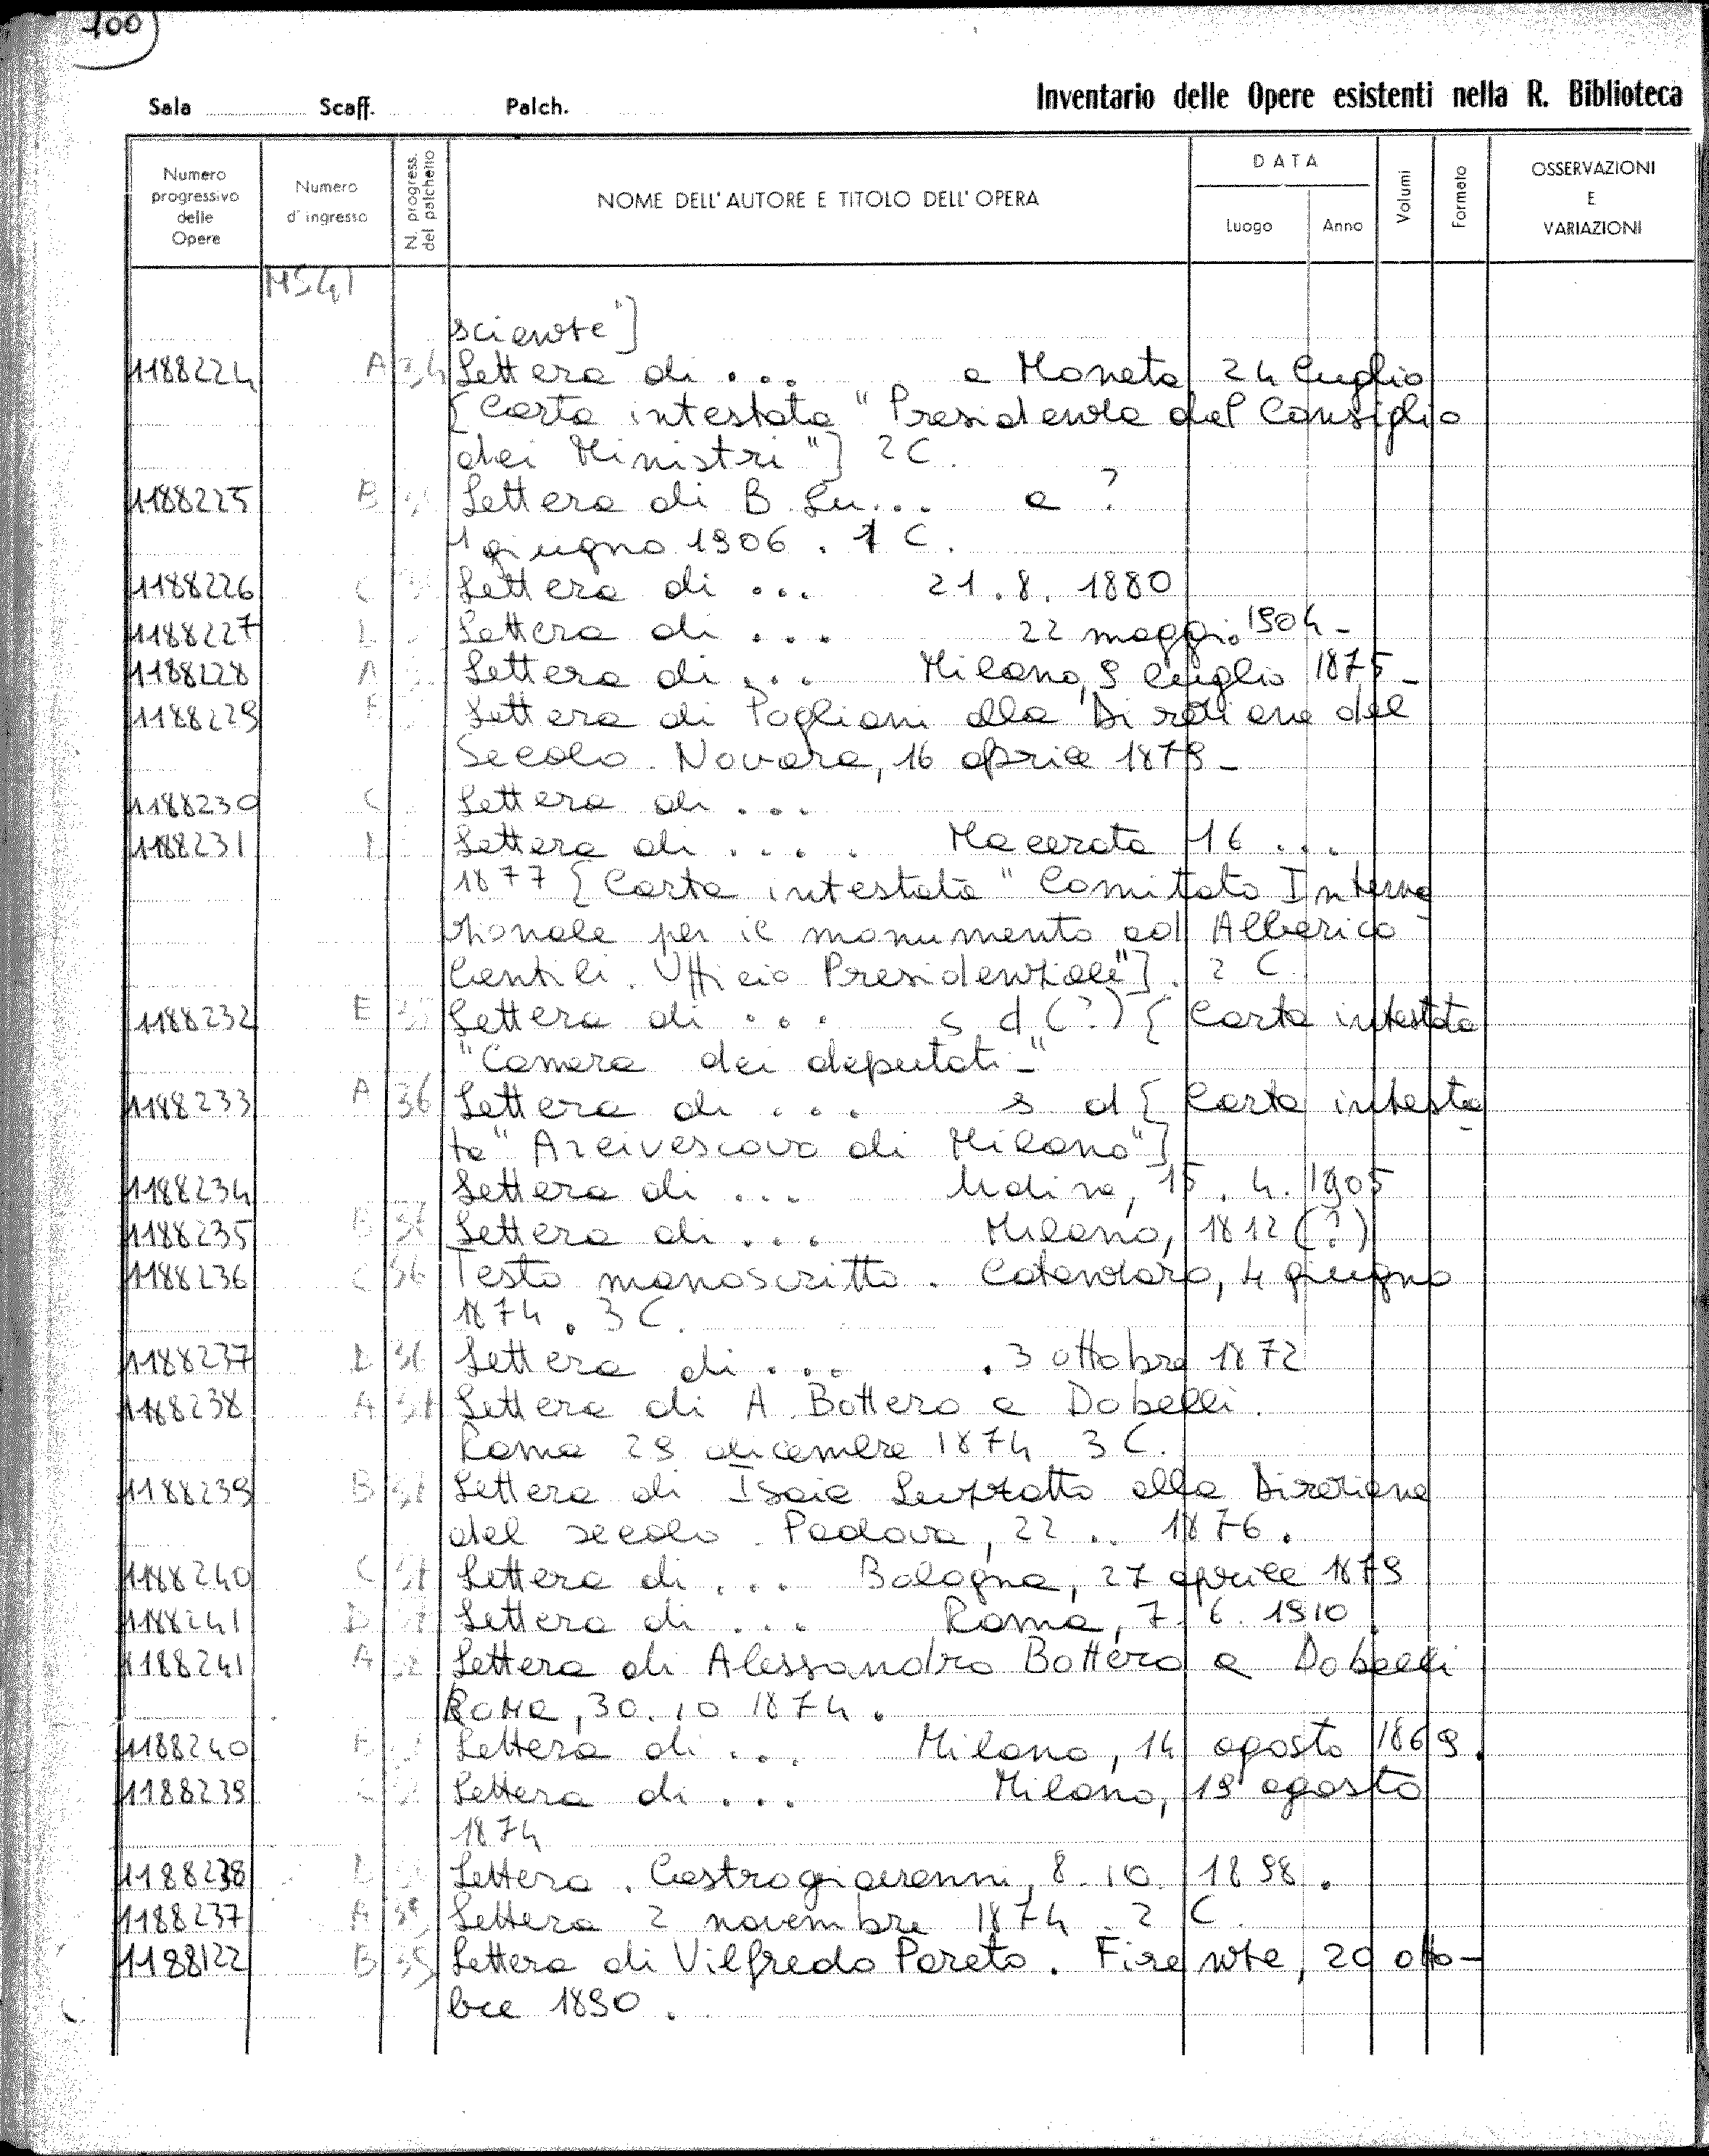 100
Inventario delle Opere esistenti nella R. Biblioteca
Sala Scaff. Palch.
Numero progressivo delle Opere
Numero d'ingresso
N. progress. del palchetto
NOME DELL'AUTORE E TITOLO DELL'OPERA
DATA
Luogo Anno
Volumi
Formato
OSSERVAZIONI E VARIAZIONI
MS41
scienze"]
1188224 A 34 Lettera di ... a Moneta 24 luglio
[Carta intestata "Presidenza del Consiglio
dei Ministri"] 2 C.
1188225 B Lettera di B. Lu... a ?
1 giugno 1906. 1 C.
1188226 C Lettera di ... 21.8.1880
1188227 D Lettera di ... 22 maggio 1904-
1188228 A Lettera di ... Milano, 9 luglio 1875-
1188229 B Lettera di Pogliani alla Direzione del
Secolo. Novara, 16 aprile 1879-
1188230 C Lettera di ...
1188231 D Lettera di .... Macerata 16 ...
1877 [Carta intestata "Comitato Interna
zionale per il monumento ad Alberico
Gentili. Ufficio Presidenziale"]. 2 C.
1188232 E 35 Lettera di ... s d (?) [Carta intestata
"Camera dei deputati-"
1188233 A 36 Lettera di ... s d [Carta intesta
ta "Arcivescovo di Milano"]
1188234 Lettera di ... Udine, 15.4.1905
1188235 B Lettera di ... Milano, 1812 (?)
1188236 C 36 Testo manoscritto. Catanzaro, 4 giugno
1874. 3 C.
1188237 D 36 Lettera di ... . 3 ottobre 1872
1188238 A Lettera di A. Bottero a Dobelli.
Roma 29 dicembre 1874 3 C.
1188239 B Lettera di Isaia Luzzatto alla Direzione
del secolo. Padova, 22 .. 1876.
1188240 C Lettera di ... Bologna, 27 aprile 1879
1188241 D Lettera di ... Roma, 7.6.1910
1188241 A Lettera di Alessandro Bottero a Dobelli
Roma, 30.10 1874.
1188240 B Lettera di ... Milano, 14 agosto 1869.
1188239 C Lettera di ... Milano, 19 agosto
1874
1188238 D Lettera. Castrogiovanni, 8.10. 1898.
1188237 A Lettera 2 novembre 1874. 2 C.
1188122 B Lettera di Vilfredo Pareto. Firenze, 20 otto-
bre 1890.